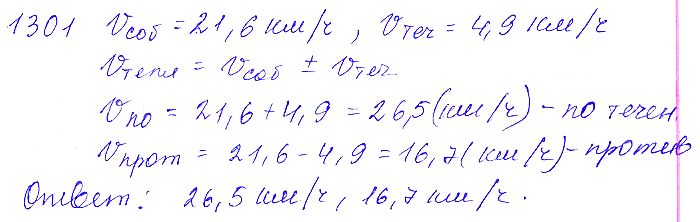 1301 Vсоб = 21,6 км/ч, Vтеч = 4,9 км/ч
Vтепл = Vсоб ± Vтеч
Vпо = 21,6 + 4,9 = 26,5 (км/ч) – по течен.
Vпрот = 21,6 – 4,9 = 16,7 (км/ч) – против
Ответ: 26,5 км/ч, 16,7 км/ч.